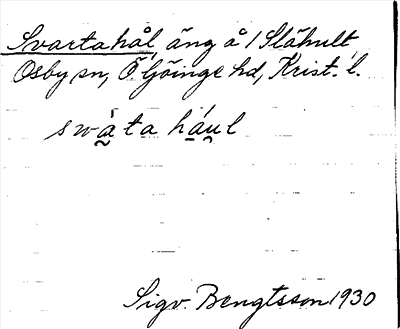 Svartahål, äng å 1 Slähult
Osby sn, Ö Göinge hd, Krist. l.
swàta háu̯l
Sigv. Bengtsson 1930